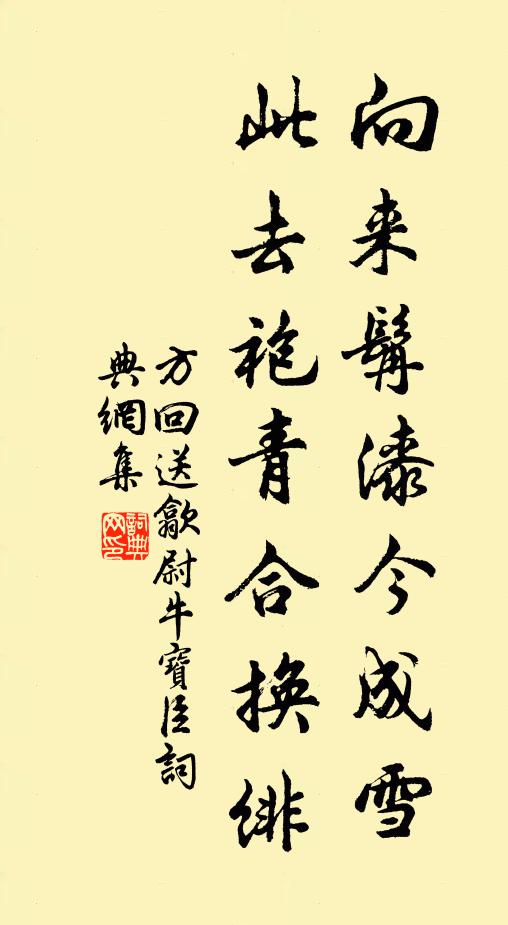 向来鬓漆今成雪
此去袍青合换绯
方回送歙尉牛寶臣詞
典網集
詞典
网印